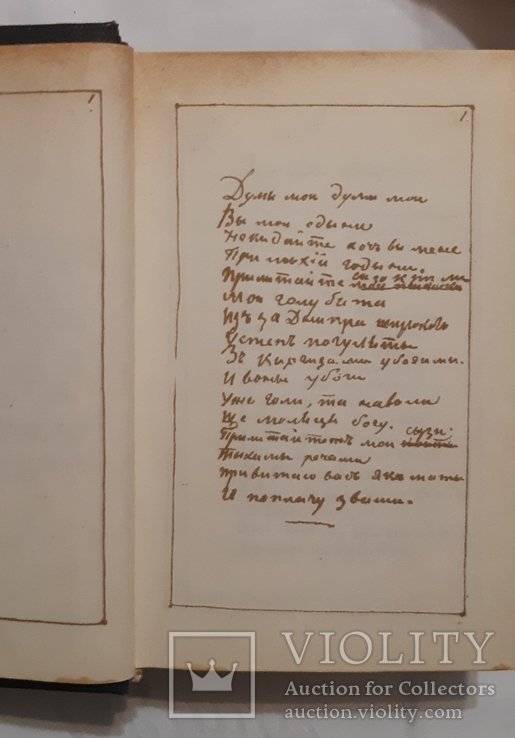 1
1.
Думы мои думы мои
Вы мои едыни
Некидайте хочь вы мене
При лыхій годыни.
Прилитайте сизокрыли
Мои голубята
Изъ за Днипра широкого
У степъ погуляты
Зъ Киргизами убогими.
И воны убоги
Уже голи, та наволи
Ще молыця богу.
Прилитайтежъ мои сызы:
Тыхимы речами
Привитаю васъ якъ маты
И поплачу зъвами.
VIOLITY
Auction for Collectors
auction.violity.com